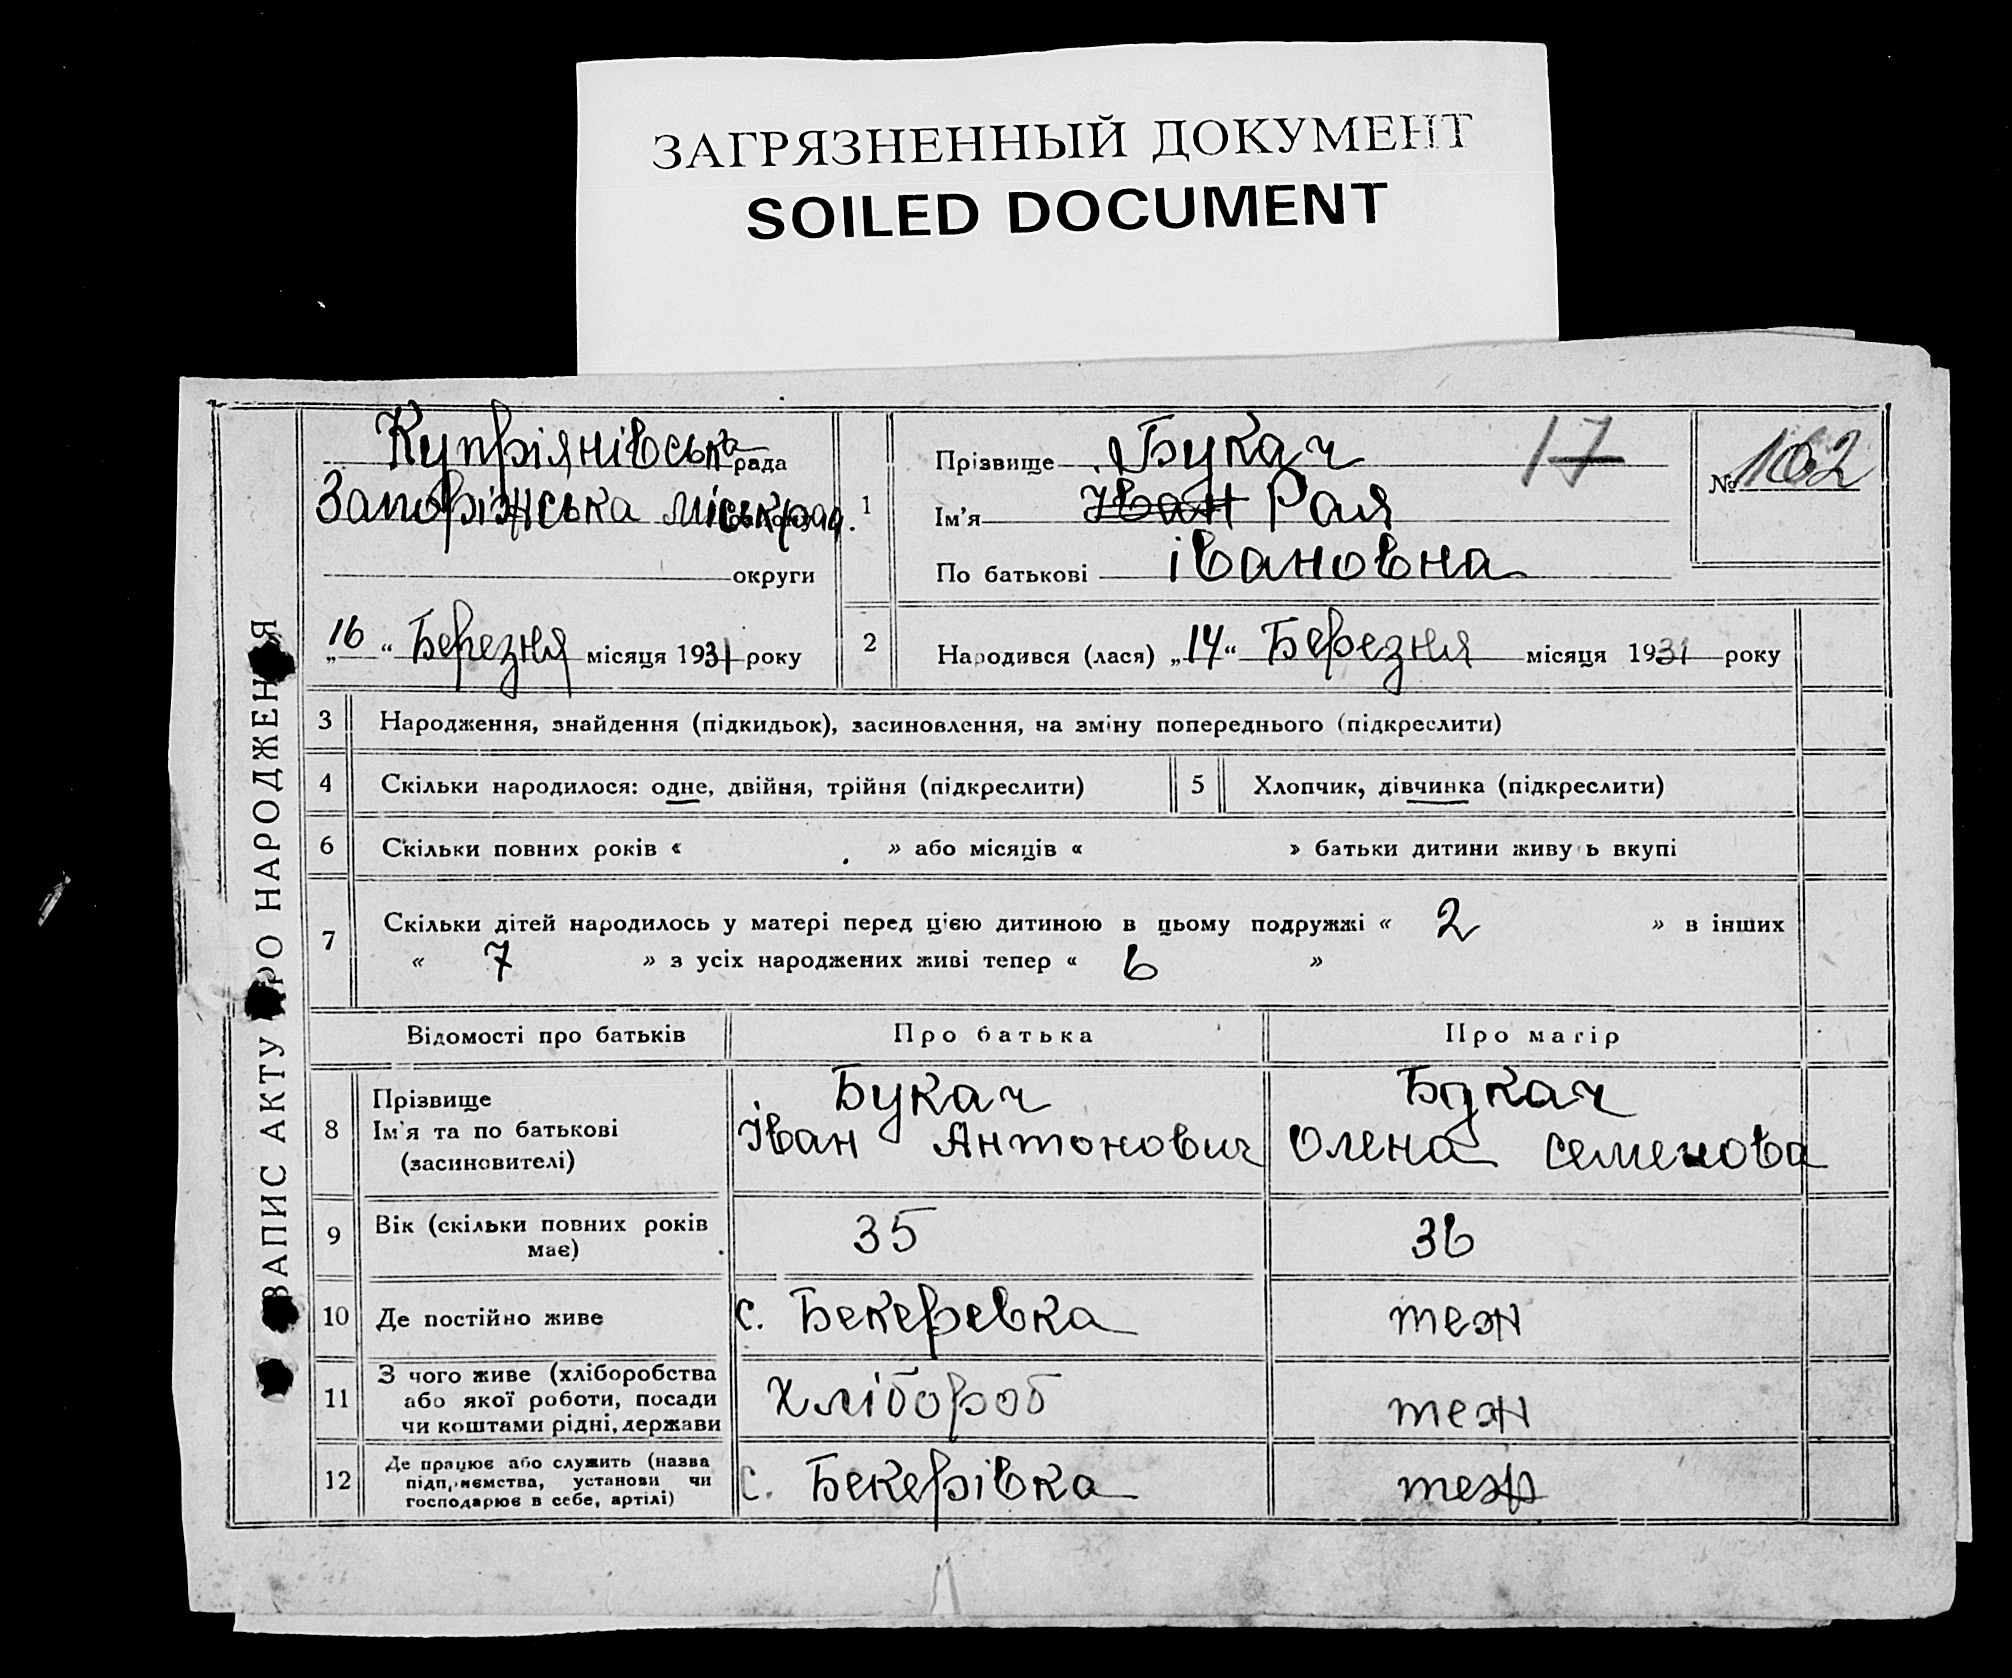 ЗАГРЯЗНЕННЫЙ ДОКУМЕНТ
SOILED DOCUMENT
ЗАПИС АКТУ ПРО НАРОДЖЕННЯ
Купріянівська рада
Запоріжська міськрад.
округи
„16“ Березня місяця 1931 року
1
Прізвище Букач 17
Ім'я Іван Рая
По батькові івановна
№ 162
2
Народився (лася) „14“ Березня місяця 1931 року
3 Народження, знайдення (підкидьок), засиновлення, на зміну попереднього (підкреслити)
4 Скільки народилося: одне, двійня, трійня (підкреслити) 5 Хлопчик, дівчинка (підкреслити)
6 Скільки повних років « » або місяців « » батьки дитини живу ь вкупі
7 Скільки дітей народилось у матері перед цією дитиною в цьому подружжі « 2 » в інших
« 7 » з усіх народжених живі тепер « 6 »
Відомості про батьків Про батька Про матір
8 Прізвище Букач Букач
Ім'я та по батькові Іван Антонович Олена семенова
(засиновителі)
9 Вік (скільки повних років 35 36
має)
10 Де постійно живе с. Бекеревка теж
11 З чого живе (хліборобства Хлібороб теж
або якої роботи, посади
чи коштами рідні, держави
12 Де працює або служить (назва с. Бекерівка теж
підприємства, установи чи
господарює в себе, артілі)